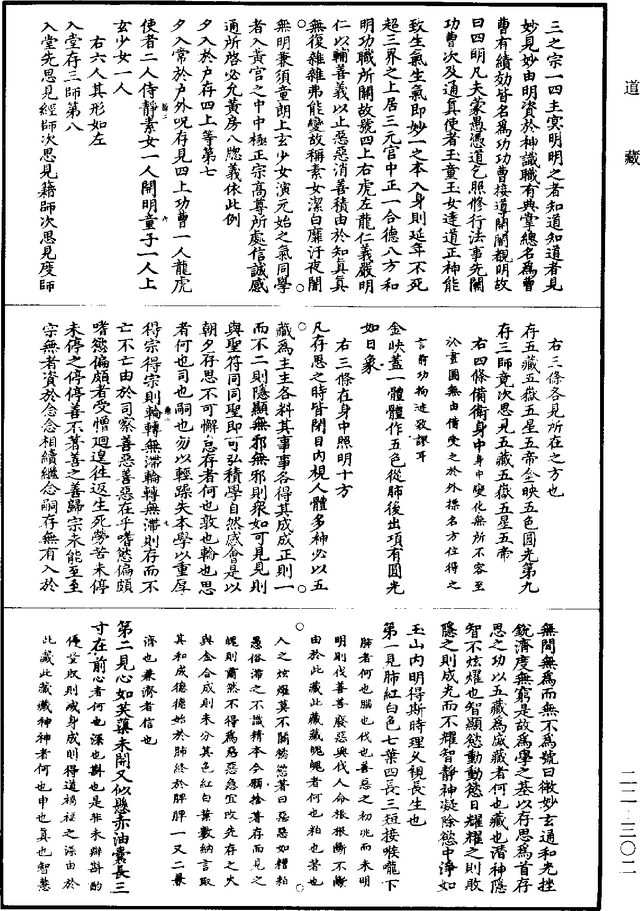 道藏
三之宗一四主冥明明之者知道知道者見
妙見妙由明資於神識職有典掌總名為曹
曹有績効皆名為功功曹接導開關觀明故
曰四明凡夫蒙愚憑道乞照修行法事先關
功曹次及通真使者玉童玉女達道正神能
致生氣生氣即妙一之本入身則延年不死
超三界之上居三元宮中正一合德八方和
明功職所關故號四上右虎左龍仁義嚴明
仁以輔善義以止惡惡消善積由於知真真
無復雜雜弗能變故稱素女潔白靡汙夜闇
無明兼須童朗上玄少女演元始之氣同學
者入黃宮之中中極正宗高尊所處信誠感
通所啓必允黃房八牕義依此例
夕入於户存四上等第七
夕入常於户外呪存見四上功曹一人龍虎
使者二人侍靜素女一人開明童子一人上
玄少女一人
右六人其形如左
入堂存三師第八
入堂先思見經師次思見籍師次思見度師
右三條各見所在之方也
存五藏五嶽五星五帝金映五色圓光第九
存三師竟次思見五藏五嶽五星五帝
右四條備衛身中身中變化無所不容至
於畫圖無由備受之於外標名方位得之
言前功拘迹教謬耳
金映蓋一體體作五色從肺後出項有圓光
如日象
右三條在身中照明十方
凡存思之時皆閉目内視人體多神必以五
藏為主主各料其事事各得其成成正則一
而不二則隱顯無邪無邪則衆如可見見則
與聖符同同聖即可弘積學自然感會是以
朝夕存思不可懈怠存者何也敦也輪也思
者何也司也嗣也勿以輕躁失本學以重厚
得宗得宗則輪轉無滯輪轉無滯則存而不
亡不亡由於司察善惡善惡在乎嗜慾偏頗
嗜慾偏頗者受憎迴遑往返生死勞苦未停
未停之停停善不著善之善歸宗未能至至
宗無者資於念念相續繼念嗣存無有入於
無間無為而無不為號曰微妙玄通和光挫
銳濟度無窮是故為學之基以存思為首存
思之功以五藏為盛藏者何也藏也潛神隱
智不炫燿也智顯慾動動慾日耀耀之則敗
隱之則成光而不耀智靜神凝除慾中淨如
玉山内明得斯時理乂視長生也
第一見肺紅白色七葉四長三短接喉嚨下
肺者何也腦也伐也善惡之初兆而未明
明則伐善善廢惡興伐人命根根斷不斷
由於此藏此藏藏魄魄者何也粕也著也
人之炫燿莫不關於慾著曰惡惡如糟粕
愚俗滯之不識精本今願捨著存而見之
魄則肅然不得為惡惡急宜改先存之火
與金合成則未分其色紅白葉數納言取
其和成德德始於肺終於脾脾一又二兼
濟也兼濟者信也
第二見心如芙蕖未開又似懸赤油囊長三
寸在前心者何也深也斟也是非未辯斟酌
優量敗則滅身成則得道禍福之深由於
此藏此藏藏神神者何也申也真也智慧
二二-三〇二